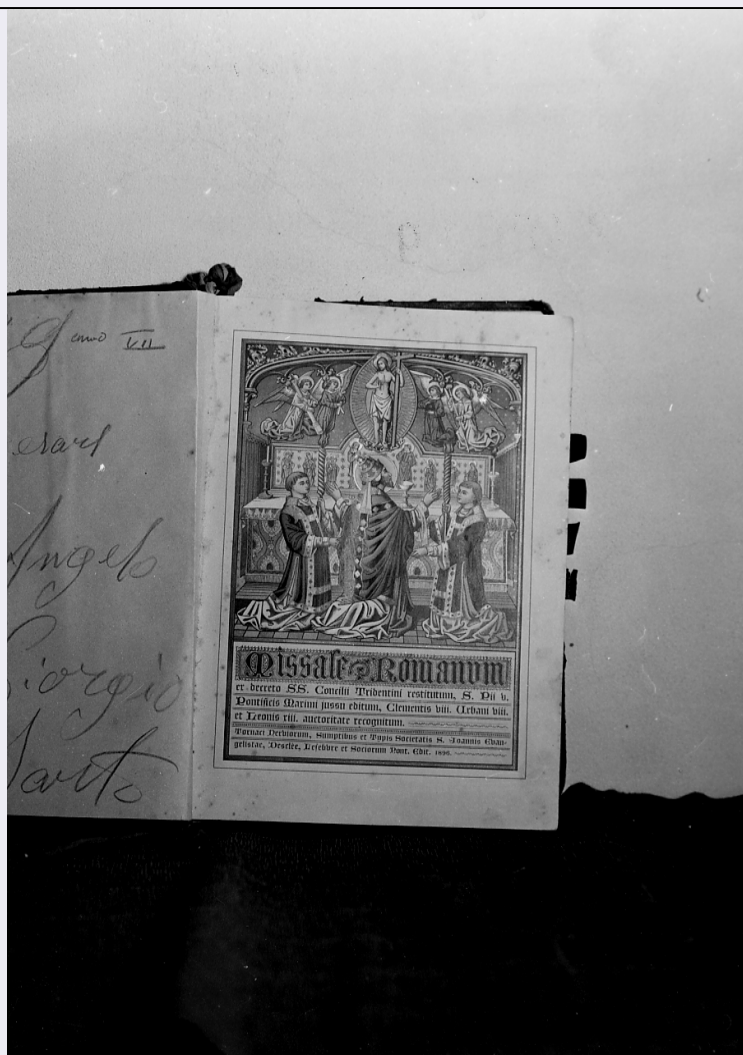 9 anno VII
Angelo
Giorgio
Sarto
Missale Romanum
ex decreto SS. Concilii Tridentini restitutum, S. Pii V.
Pontificis Maximi jussu editum, Clementis VIII. Urbani VIII.
et Leonis XIII. auctoritate recognitum.
Tornaci Nerviorum, Sumptibus et Typis Societatis S. Joannis Evan-
gelistae, Desclée, Lefebvre et Sociorum Pont. Edit. 1896.